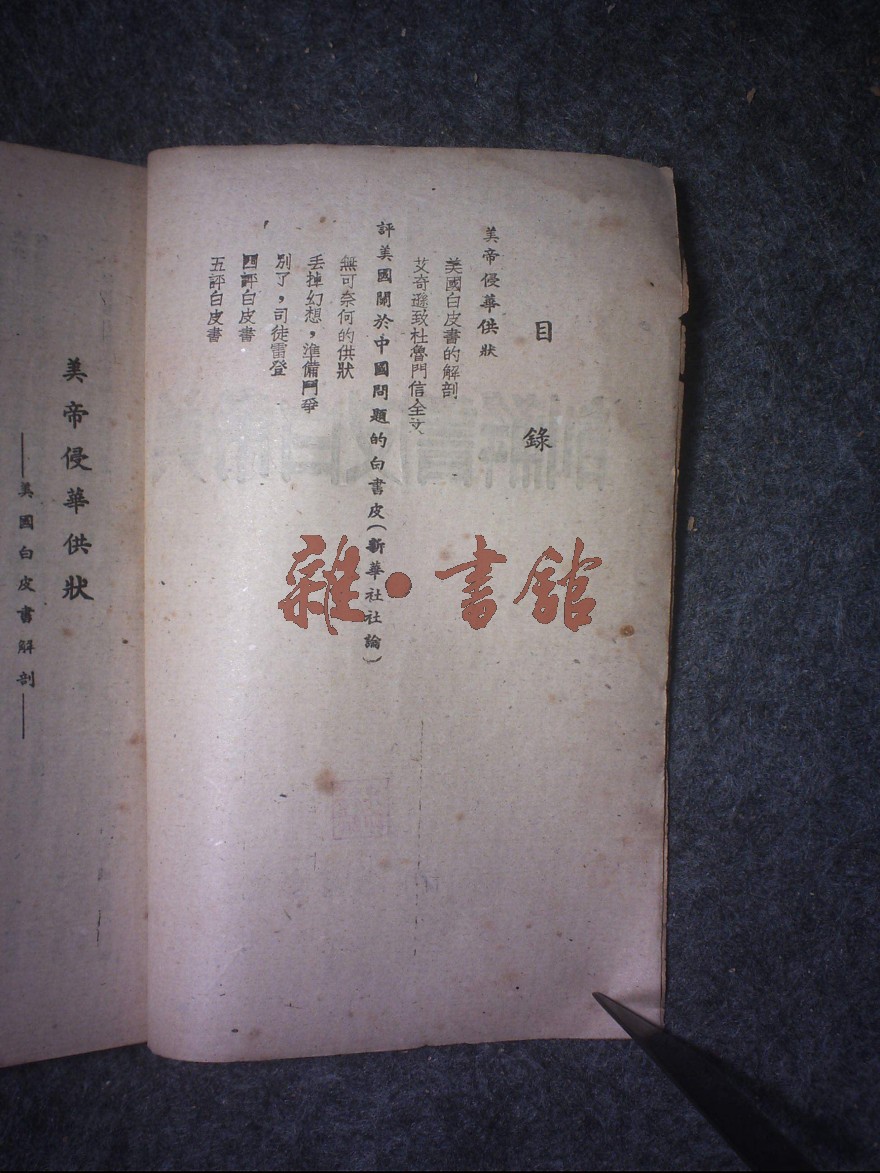 目錄
美帝侵華供狀
美國白皮書的解剖
艾奇遜致杜魯門信全文
評美國關於中國問題的白書皮(新華社社論)
無可奈何的供狀
丢掉幻想，準備鬥爭
別了，司徒雷登
四評白皮書
五評白皮書
美帝侵華供狀
——美國白皮書解剖——
雜·書館